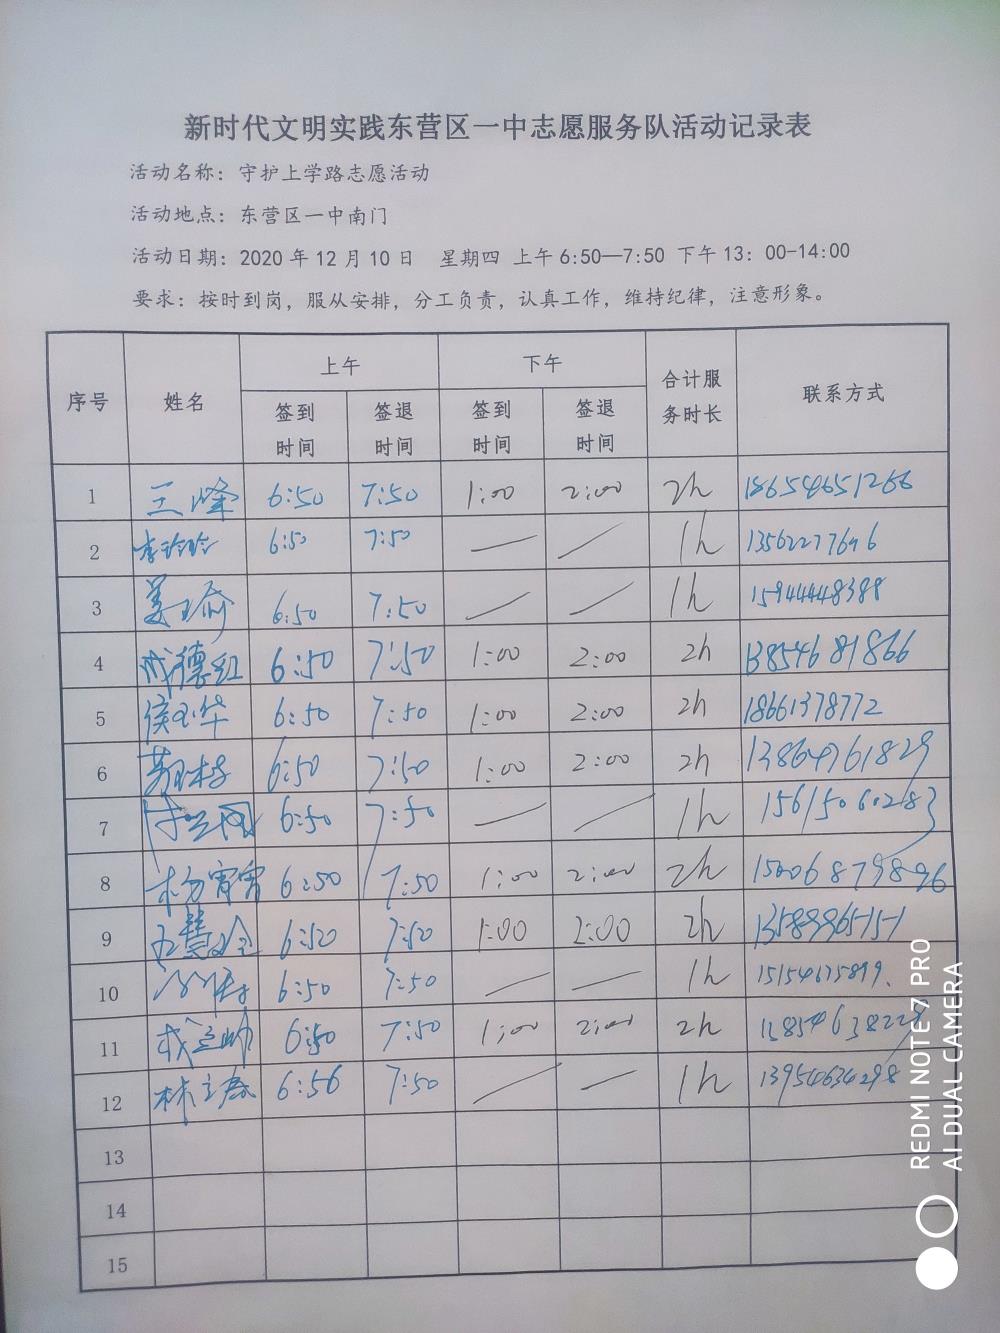 新时代文明实践东营区一中志愿服务队活动记录表
活动名称：守护上学路志愿活动
活动地点：东营区一中南门
活动日期：2020 年 12 月 10 日 星期四 上午 6:50—7:50 下午 13：00-14:00
要求：按时到岗，服从安排，分工负责，认真工作，维持纪律，注意形象。
序号 姓名 上午 下午 合计服务时长 联系方式
签到时间 签退时间 签到时间 签退时间
1 王峰 6:50 7:50 1:00 2:00 2h 18654651266
2 李玲玲 6:50 7:50 — — 1h 13562277696
3 姜瑜 6:50 7:50 — — 1h 15944448388
4 成德红 6:50 7:50 1:00 2:00 2h 13854681866
5 侯玉华 6:50 7:50 1:00 2:00 2h 18661378772
6 6:50 7:50 1:00 2:00 2h 13864761829
7 6:50 7:50 — — 1h 15615060283
8 杨霄霄 6:50 7:50 1:00 2:00 2h 15006879896
9 6:50 7:50 1:00 2:00 2h 13589965151
10 6:50 7:50 — — 1h 15154675899
11 6:50 7:50 1:00 2:00 2h 13854638228
12 林立春 6:56 7:50 — — 1h 13954634298
13
14
15
REDMI NOTE 7 PRO
AI DUAL CAMERA